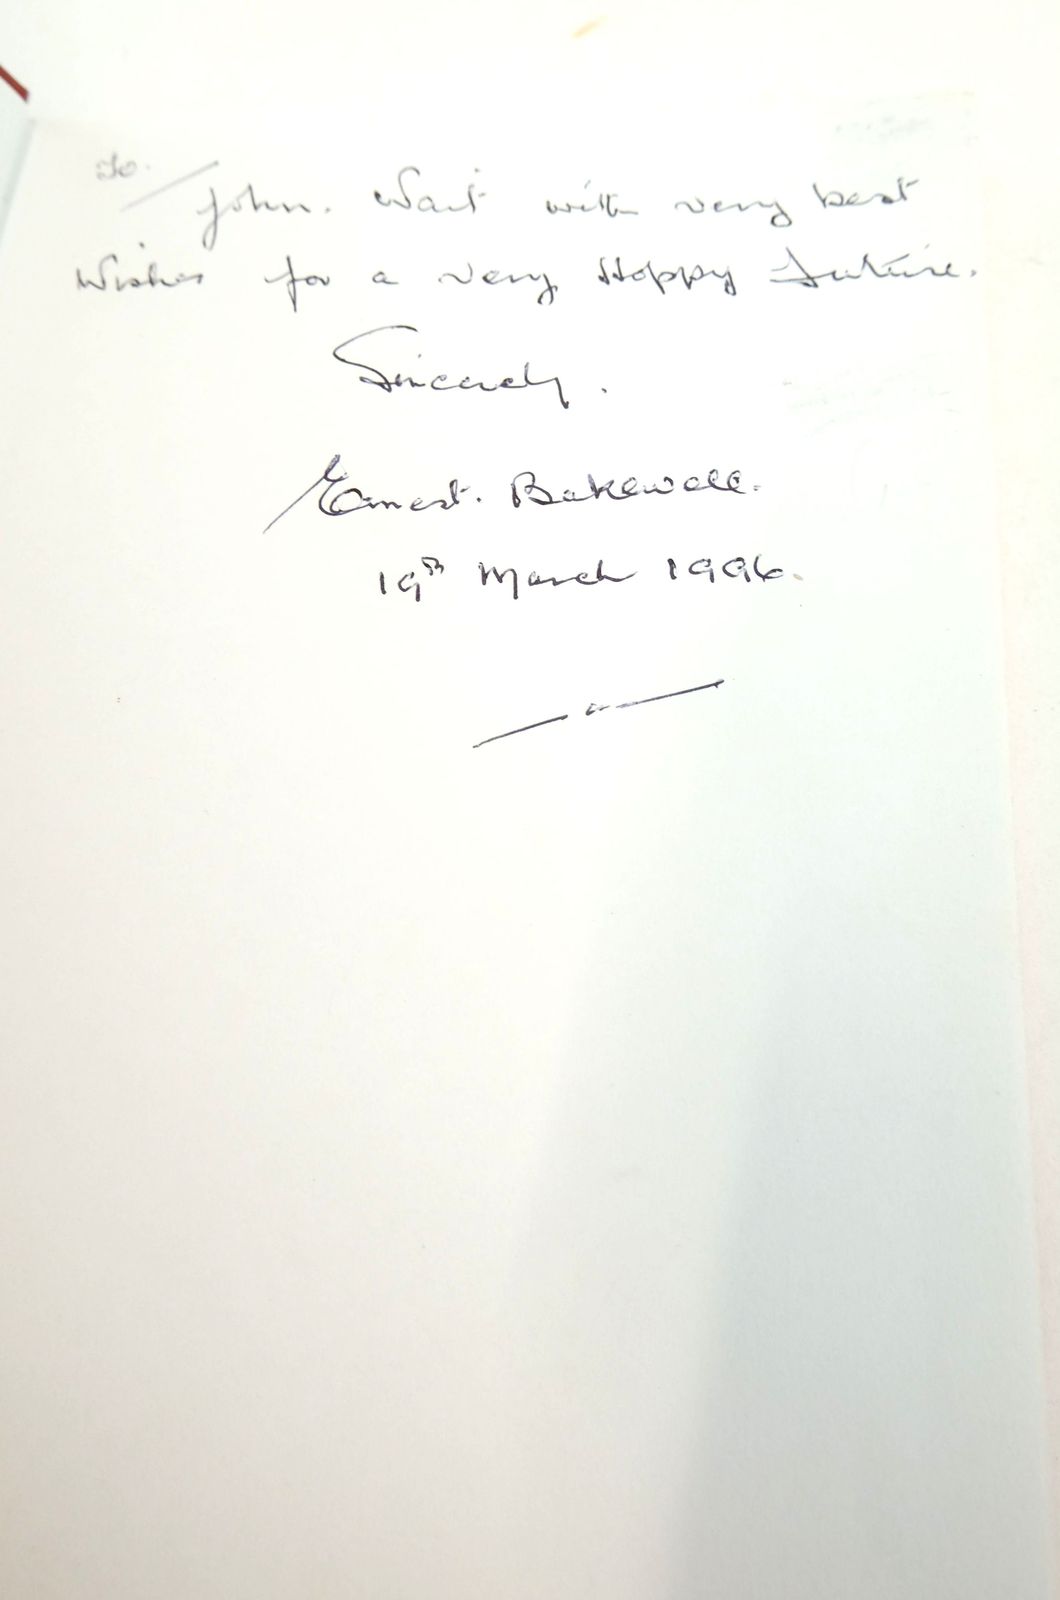 To/ John. Wait with very best
Wishes for a very Happy Future.
Sincerely.
Ernest. Bakewell.
19th March 1996.